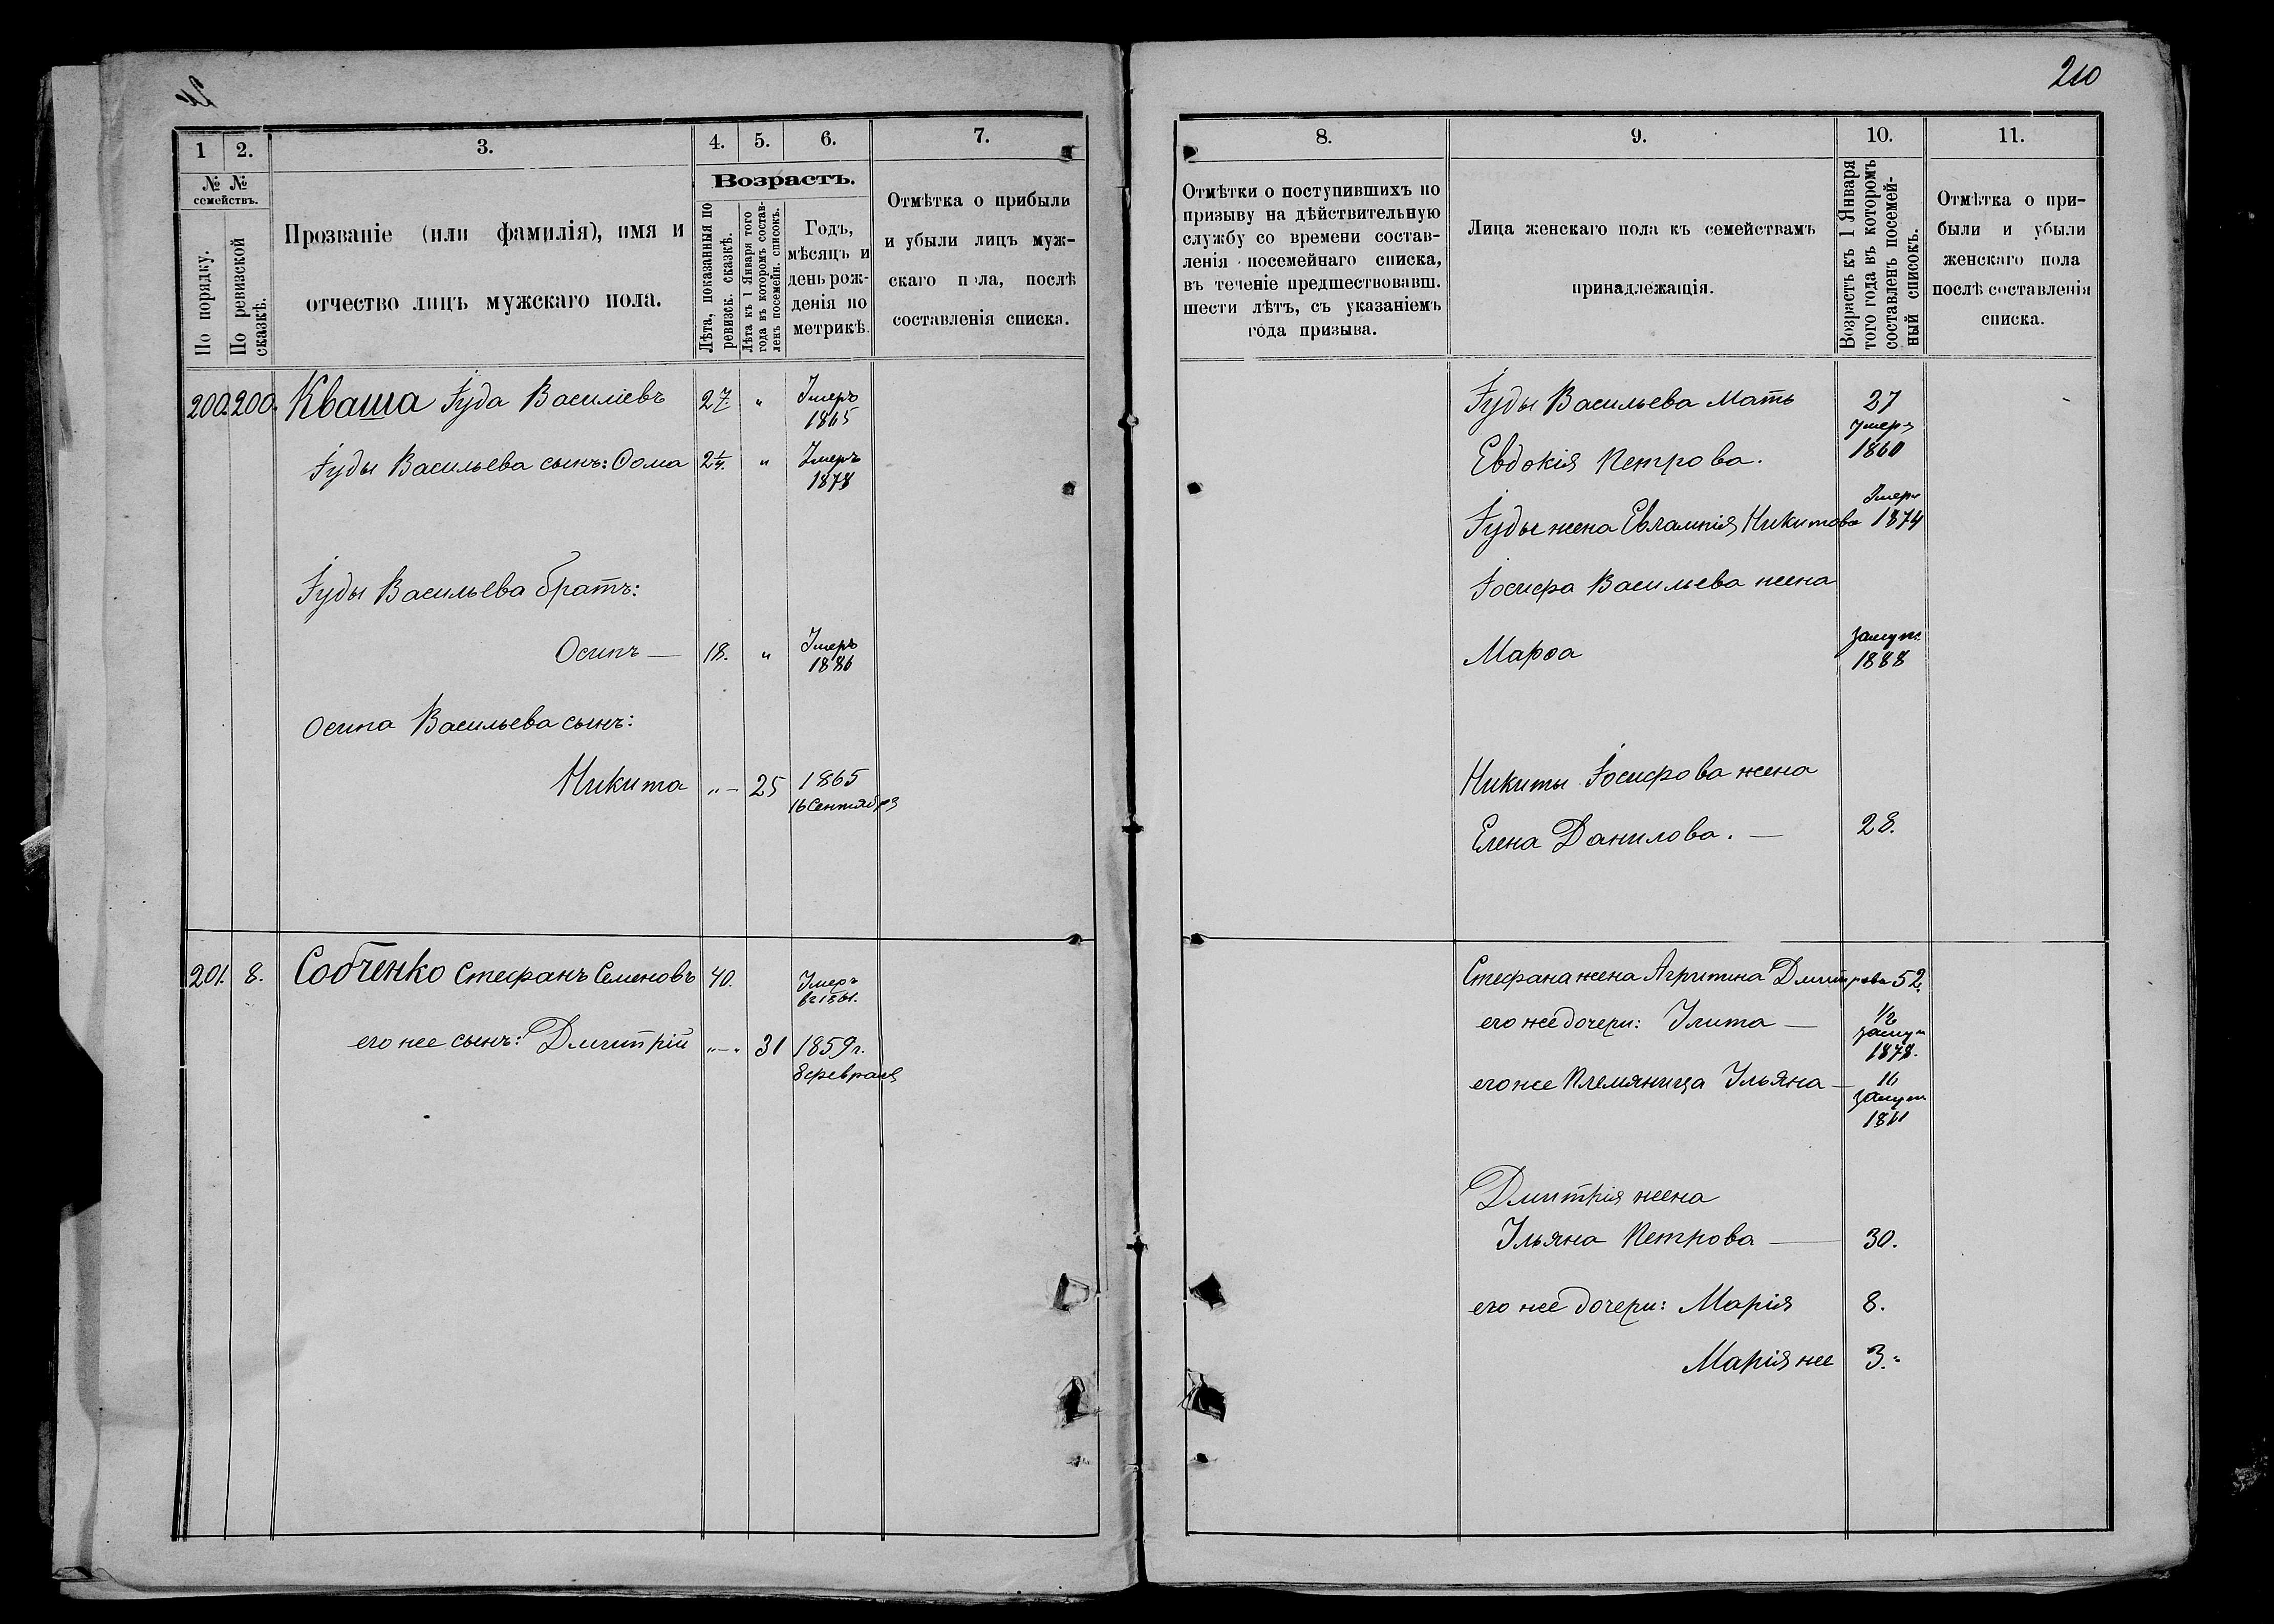 210
1 2. 3. 4. 5. 6. 7.
№ № семействъ.
По порядку.
По ревизской сказкѣ.
Прозваніе (или фамилія), имя и
отчество лицъ мужскаго пола.
Возрастъ.
Лѣта, показанныя по
ревизск. сказкѣ.
Лѣта къ 1 Января того
года въ которомъ состав-
ленъ посемейн. списокъ.
Годъ,
мѣсяцъ и
день рож-
денія по
метрикѣ.
Отмѣтка о прибыли
и убыли лицъ муж-
скаго пола, послѣ
составленія списка.
200. 200. Кваша Іуда Василіевъ 27. „ Умеръ
1865
Іуды Васильева сынъ: Ѳома „ Умеръ
1878
Іуды Васильева братъ:
Осипъ — 18. „ Умеръ
1886
Осипа Васильева сынъ:
Никита „ — 25 1865
16 Сентября
201. 8. Собченко Стефанъ Семеновъ 40. Умеръ
въ 1861.
его же сынъ: Дмитрій „—„ 31 1859 г.
8 февраля
8. 9. 10. 11.
Отмѣтки о поступившихъ по
призыву на дѣйствительную
службу со времени состав-
ленія посемейнаго списка,
въ теченіе предшествовавш.
шести лѣтъ, съ указаніемъ
года призыва.
Лица женскаго пола къ семействамъ
принадлежащія.
Возрастъ къ 1 Января
того года въ которомъ
составленъ посемей-
ный списокъ.
Отмѣтка о при-
были и убыли
женскаго пола
послѣ составленія
списка.
Іуды Васильева Мать 27
Умерл
Евдокія Петрова. 1860
Умерл
Іуды жена Евлампія Никитова 1874
Іосифа Васильева жена
Марѳа замуж.
1888
Никиты Іосифова жена
Елена Данилова. — 28.
Стефана жена Агрипина Дмитрова 52.
его же дочери: Улита — 1/2
замуж
1878.
его же племяница Ульяна — 16
замуж
1861
Дмитрія жена
Ульяна Петрова — 30.
его же дочери: Марія 8.
Марія же 3.